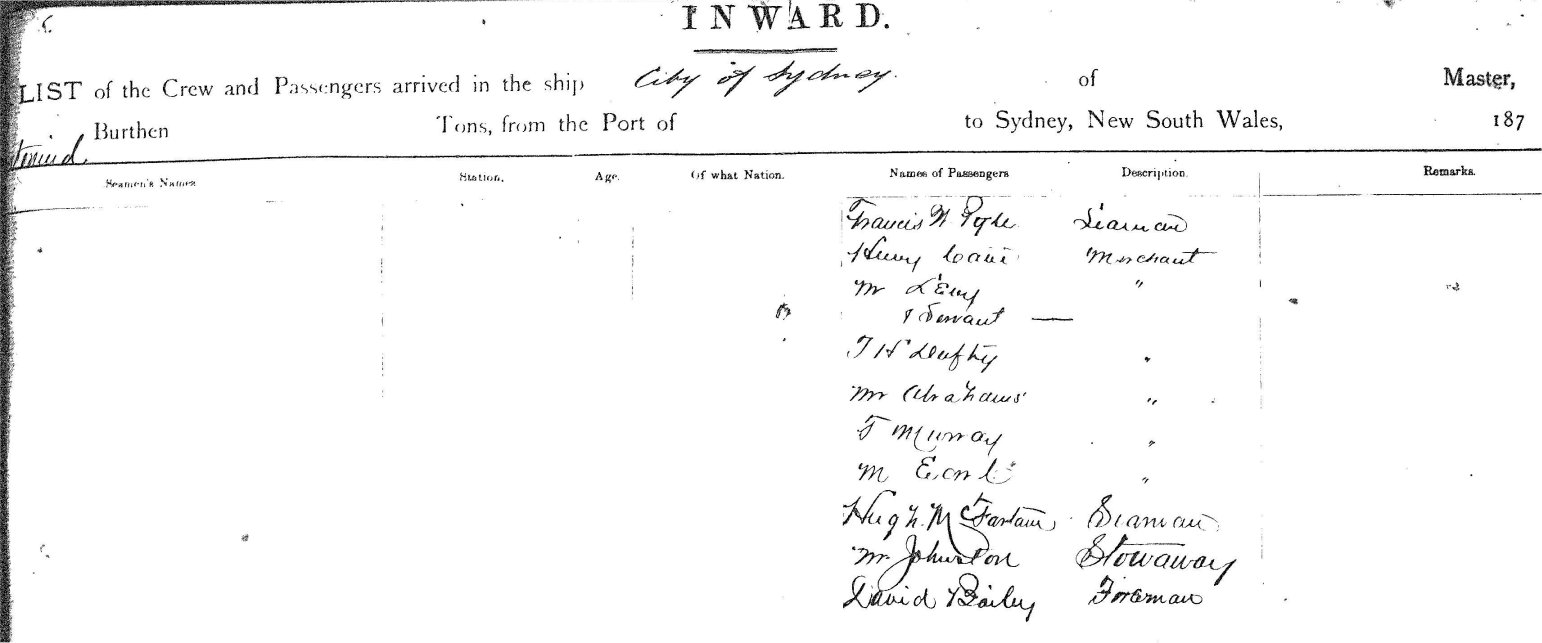 INWARD.
LIST of the Crew and Passengers arrived in the ship City of Sydney. of Master,
Burthen Tons, from the Port of to Sydney, New South Wales, 187
Seamen's Names Station. Age. Of what Nation. Names of Passengers Description. Remarks.
Francis W Seaman
Henry Merchant
Mr Levy "
& Servant —
T H Dufty "
Mr Abrahams "
T Murray "
M Earl "
Hugh McFarlane Seaman
Mr Johnston Stowaway
David Bailey Foreman